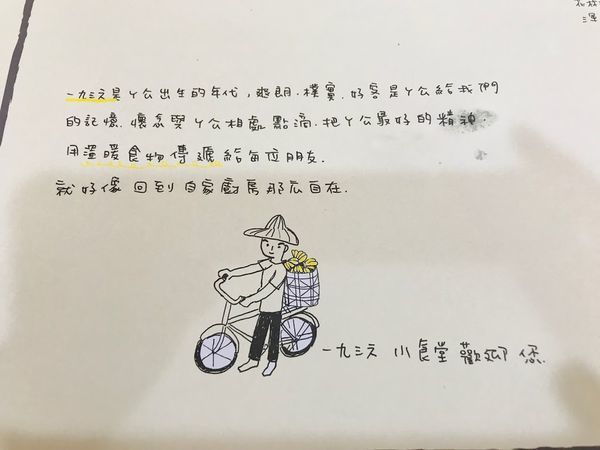 一九三六是ㄚ公出生的年代，爽朗.樸實.好客是ㄚ公給我們
的記憶.懷念與ㄚ公相處點滴.把ㄚ公最好的精神.
用溫暖食物傳遞給每位朋友.
就好像回到自家廚房那広自在.
一九三六 小食堂歡迎您.